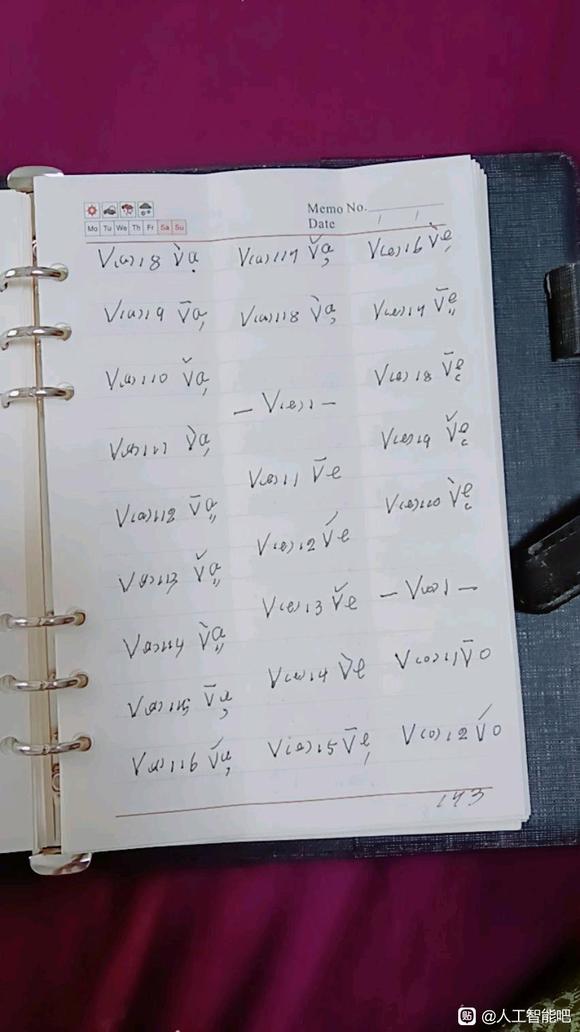 Memo No.
Date / /
Mo Tu We Th Fr Sa Su
V(a)18 V̀ạ
V(a)19 V̄a̦
V(a)110 V̌a̦
V(a)111 V̀a̦
V(a)112 V̄a,,
V(a)113 V̌a,,
V(a)114 V̀a,,
V(a)115 V̄a̦
V(a)116 V́a̦
V(a)117 V̌a̦
V(a)118 V̀a̦
— V(e)1 —
V(e)11 V̄e
V(e)12 V́e
V(e)13 V̌e
V(e)14 V̀e
V(e)15 V̄e,
V(e)16 V̀e,
V(e)17 V̄e,,
V(e)18 V̄e
V(e)19 V̌e
V(e)110 V̀e
— V(o)1 —
V(o)11 V̄o
V(o)12 V́o
143
贴 @人工智能吧